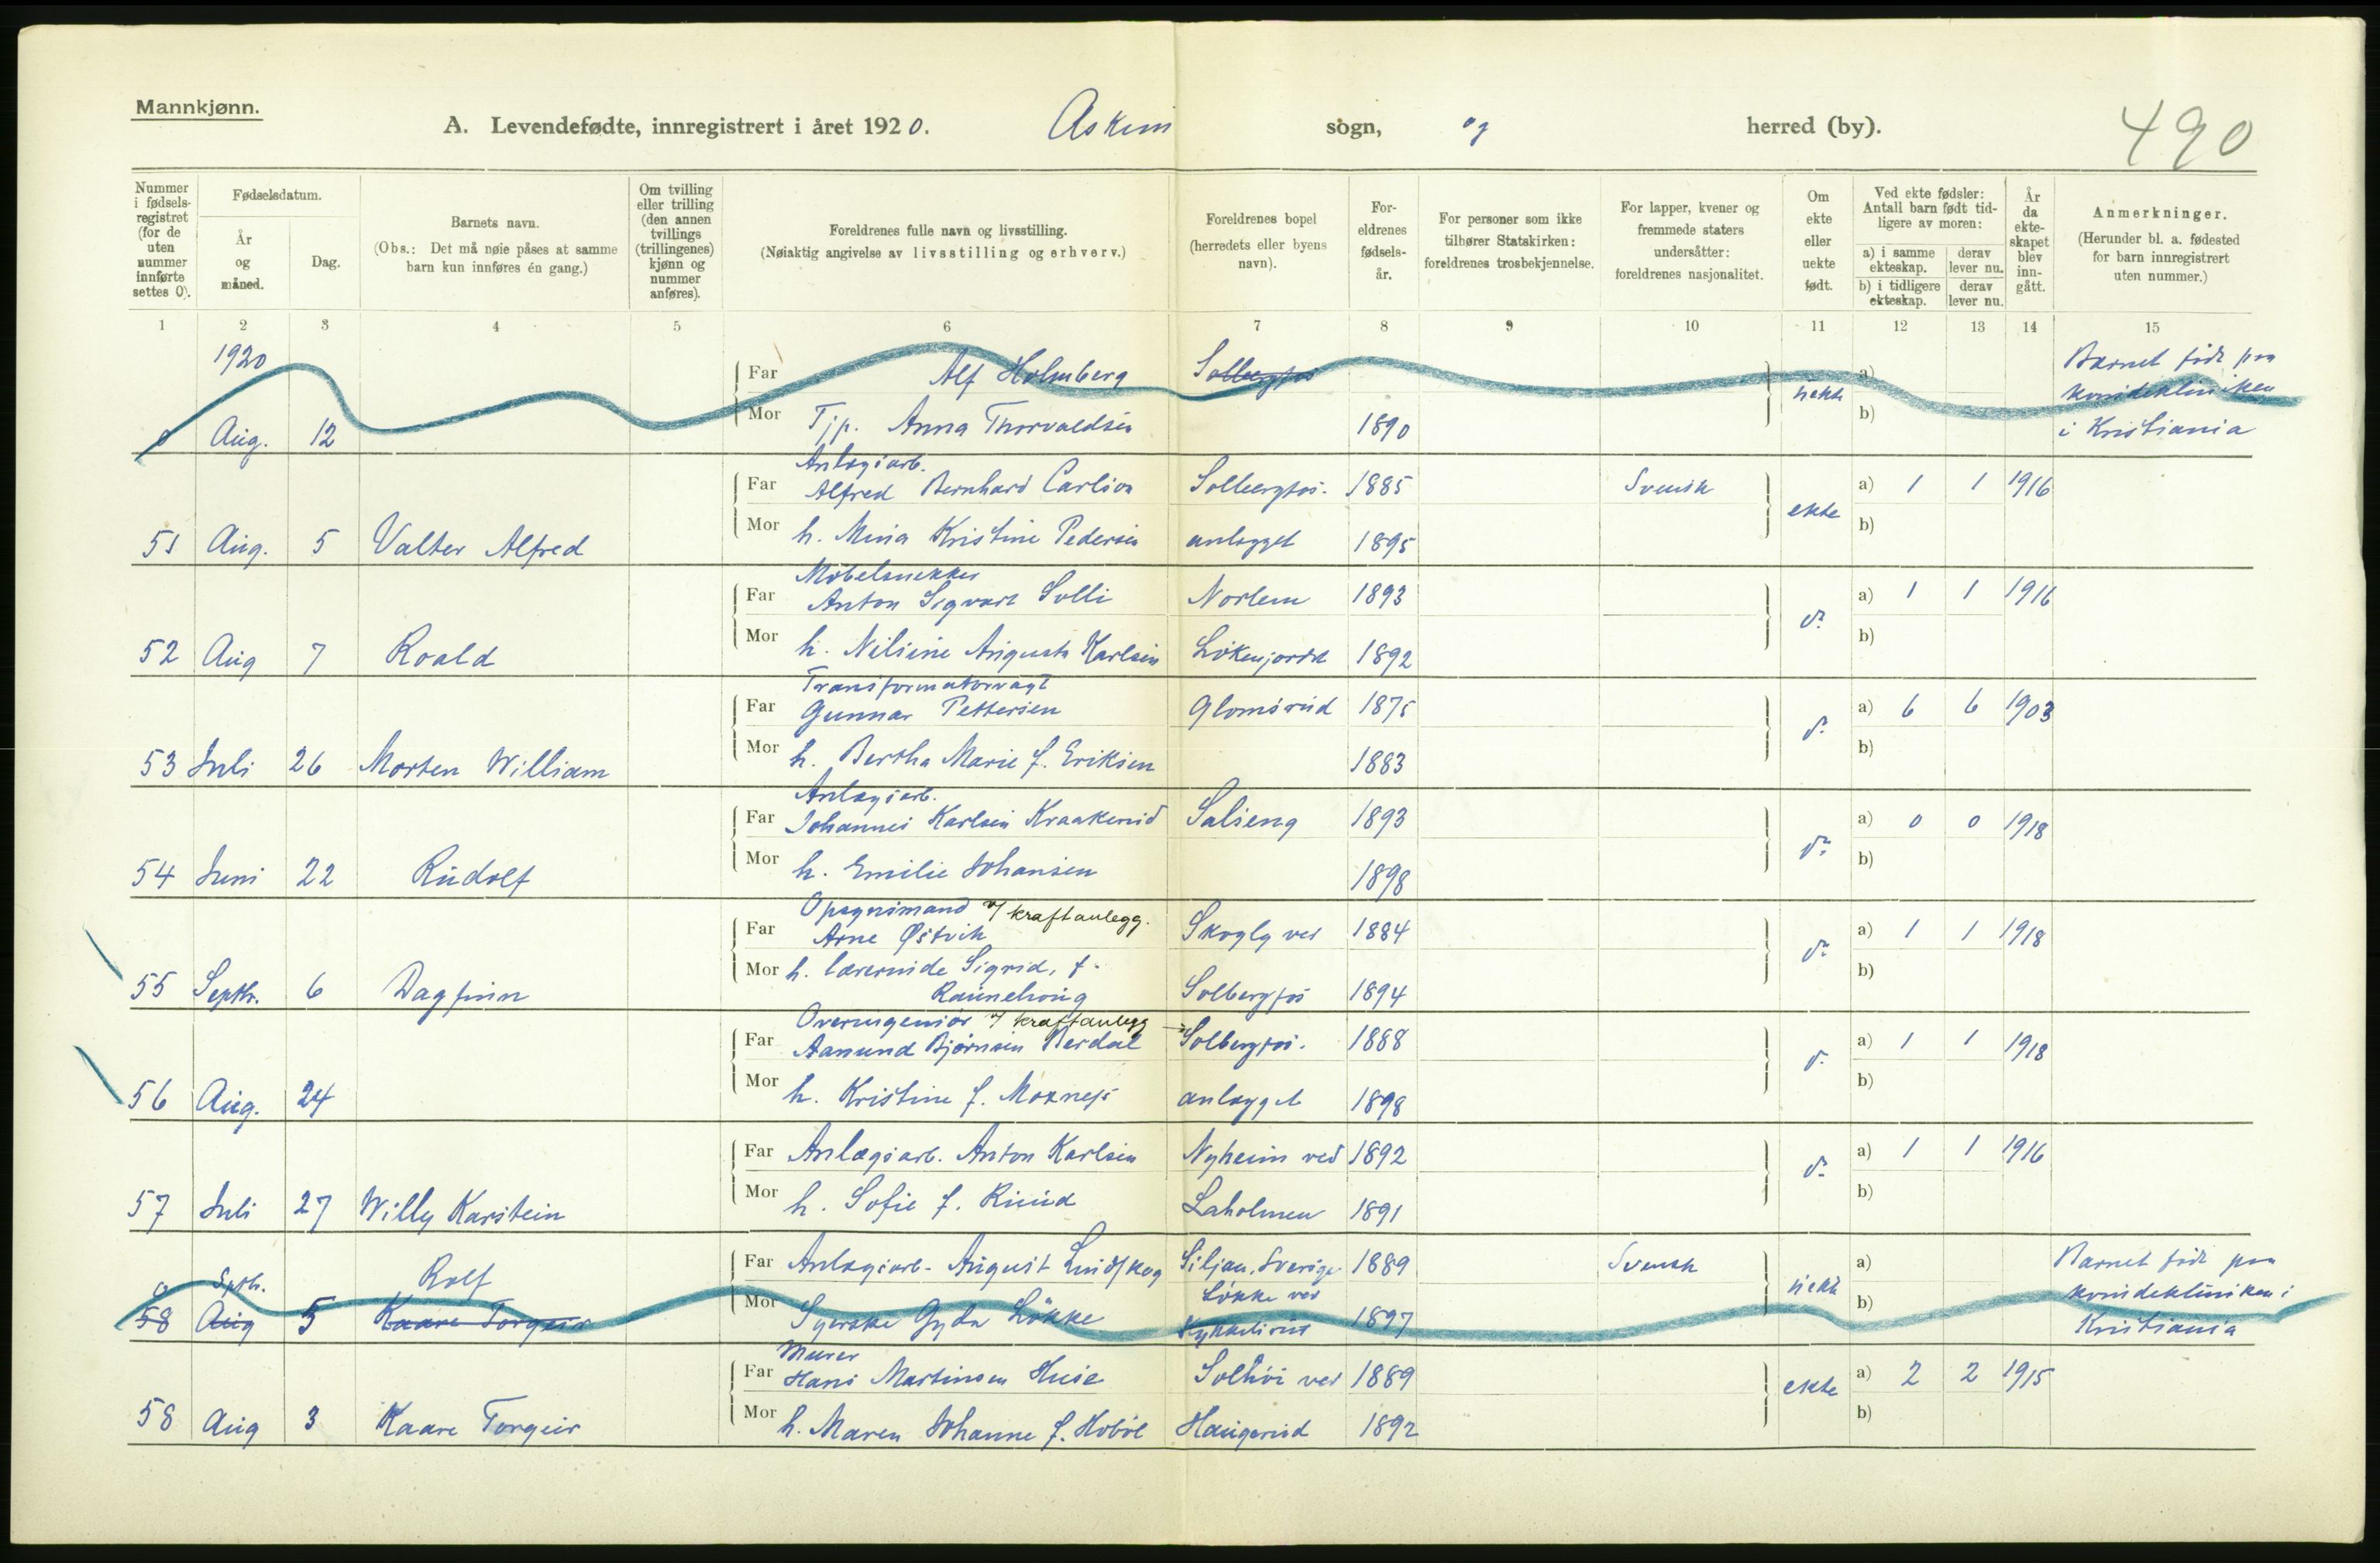 Mannkjønn.
A. Levendefødte, innregistrert i året 1920. Askim sogn, og herred (by).
490
Nummer i fødsels-registret (for de uten nummer innførte settes 0).
Fødselsdatum.
År og måned.
Dag.
Barnets navn.
(Obs.: Det må nøie påses at samme barn kun innføres én gang.)
Om tvilling eller trilling (den annen tvillings (trillingenes) kjønn og nummer anføres).
Foreldrenes fulle navn og livsstilling.
(Nøiaktig angivelse av livsstilling og erhverv.)
Foreldrenes bopel (herredets eller byens navn).
For-eldrenes fødsels-år.
For personer som ikke tilhører Statskirken: foreldrenes trosbekjennelse.
For lapper, kvener og fremmede staters undersåtter: foreldrenes nasjonalitet.
Om ekte eller uekte født.
Ved ekte fødsler: Antall barn født tid-ligere av moren:
a) i samme ekteskap.
derav lever nu.
b) i tidligere ekteskap.
derav lever nu.
År da ekte-skapet blev inn-gått.
Anmerkninger.
(Herunder bl. a. fødested for barn innregistrert uten nummer.)
1 2 3 4 5 6 7 8 9 10 11 12 13 14 15
1920
Far Alf Holmberg Solbergfos a) Barnet født paa
uekte kvindekliniken
0 Aug. 12 Mor Tjp. Anna Thorvaldsen 1890 b) i Kristiania
Anlægsarb.
Far Alfred Bernhard Carlson Solbergfos- 1885 Svensk ekte a) 1 1 1916
51 Aug. 5 Valter Alfred Mor h. Mina Kristine Pedersen anlegget 1895 b)
Møbelsnekker
Far Anton Sigvart Solli Norlem 1893 do a) 1 1 1916
52 Aug 7 Roald Mor h. Nilsine Augusta Karlsen Løkenjordet 1892 b)
Transformatorvagt
Far Gunnar Pettersen Glomsrud 1875 do a) 6 6 1903
53 Juli 26 Morten William Mor h. Bertha Marie f. Eriksen 1883 b)
Anlægsarb.
Far Johannes Karlsen Kraakerud Salseng 1893 do a) 0 0 1918
54 Juni 22 Rudolf Mor h. Emilie Johansen 1898 b)
Opsynsmand v/ kraftanlegg.
Far Arne Østvik Skogly ved 1884 do a) 1 1 1918
55 Septbr. 6 Dagfinn Mor h. lærerinde Sigrid, f. b)
Raunehaug Solbergfos 1894
Overingeniør v/ kraftanlegg
Far Aanund Bjørnsen Berdal Solbergfos- 1888 do a) 1 1 1918
56 Aug. 24 Mor h. Kristine f. Moxness anlegget 1898 b)
Far Anlægsarb. Anton Karlsen Nyheim ved 1892 do a) 1 1 1916
57 Juli 27 Willy Karstein Mor h. Sofie f. Ruud Laholmen 1891 b)
Rolf Far Anlægsarb. August Lindskog Siljan, Sverige 1889 Svensk a) Barnet født paa
0 Sptbr. Løkke ved uekte kvindekliniken i
58 Aug 5 Kaare Torgeir Mor Syerske Gyda Løkke 1897 b) Kristiania
Murer
Far Hans Martinsen Huse Solhøi ved 1889 ekte a) 2 2 1915
58 Aug 3 Kaare Torgeir Mor h. Maren Johanne f. Hobøl Haugerud 1892 b)